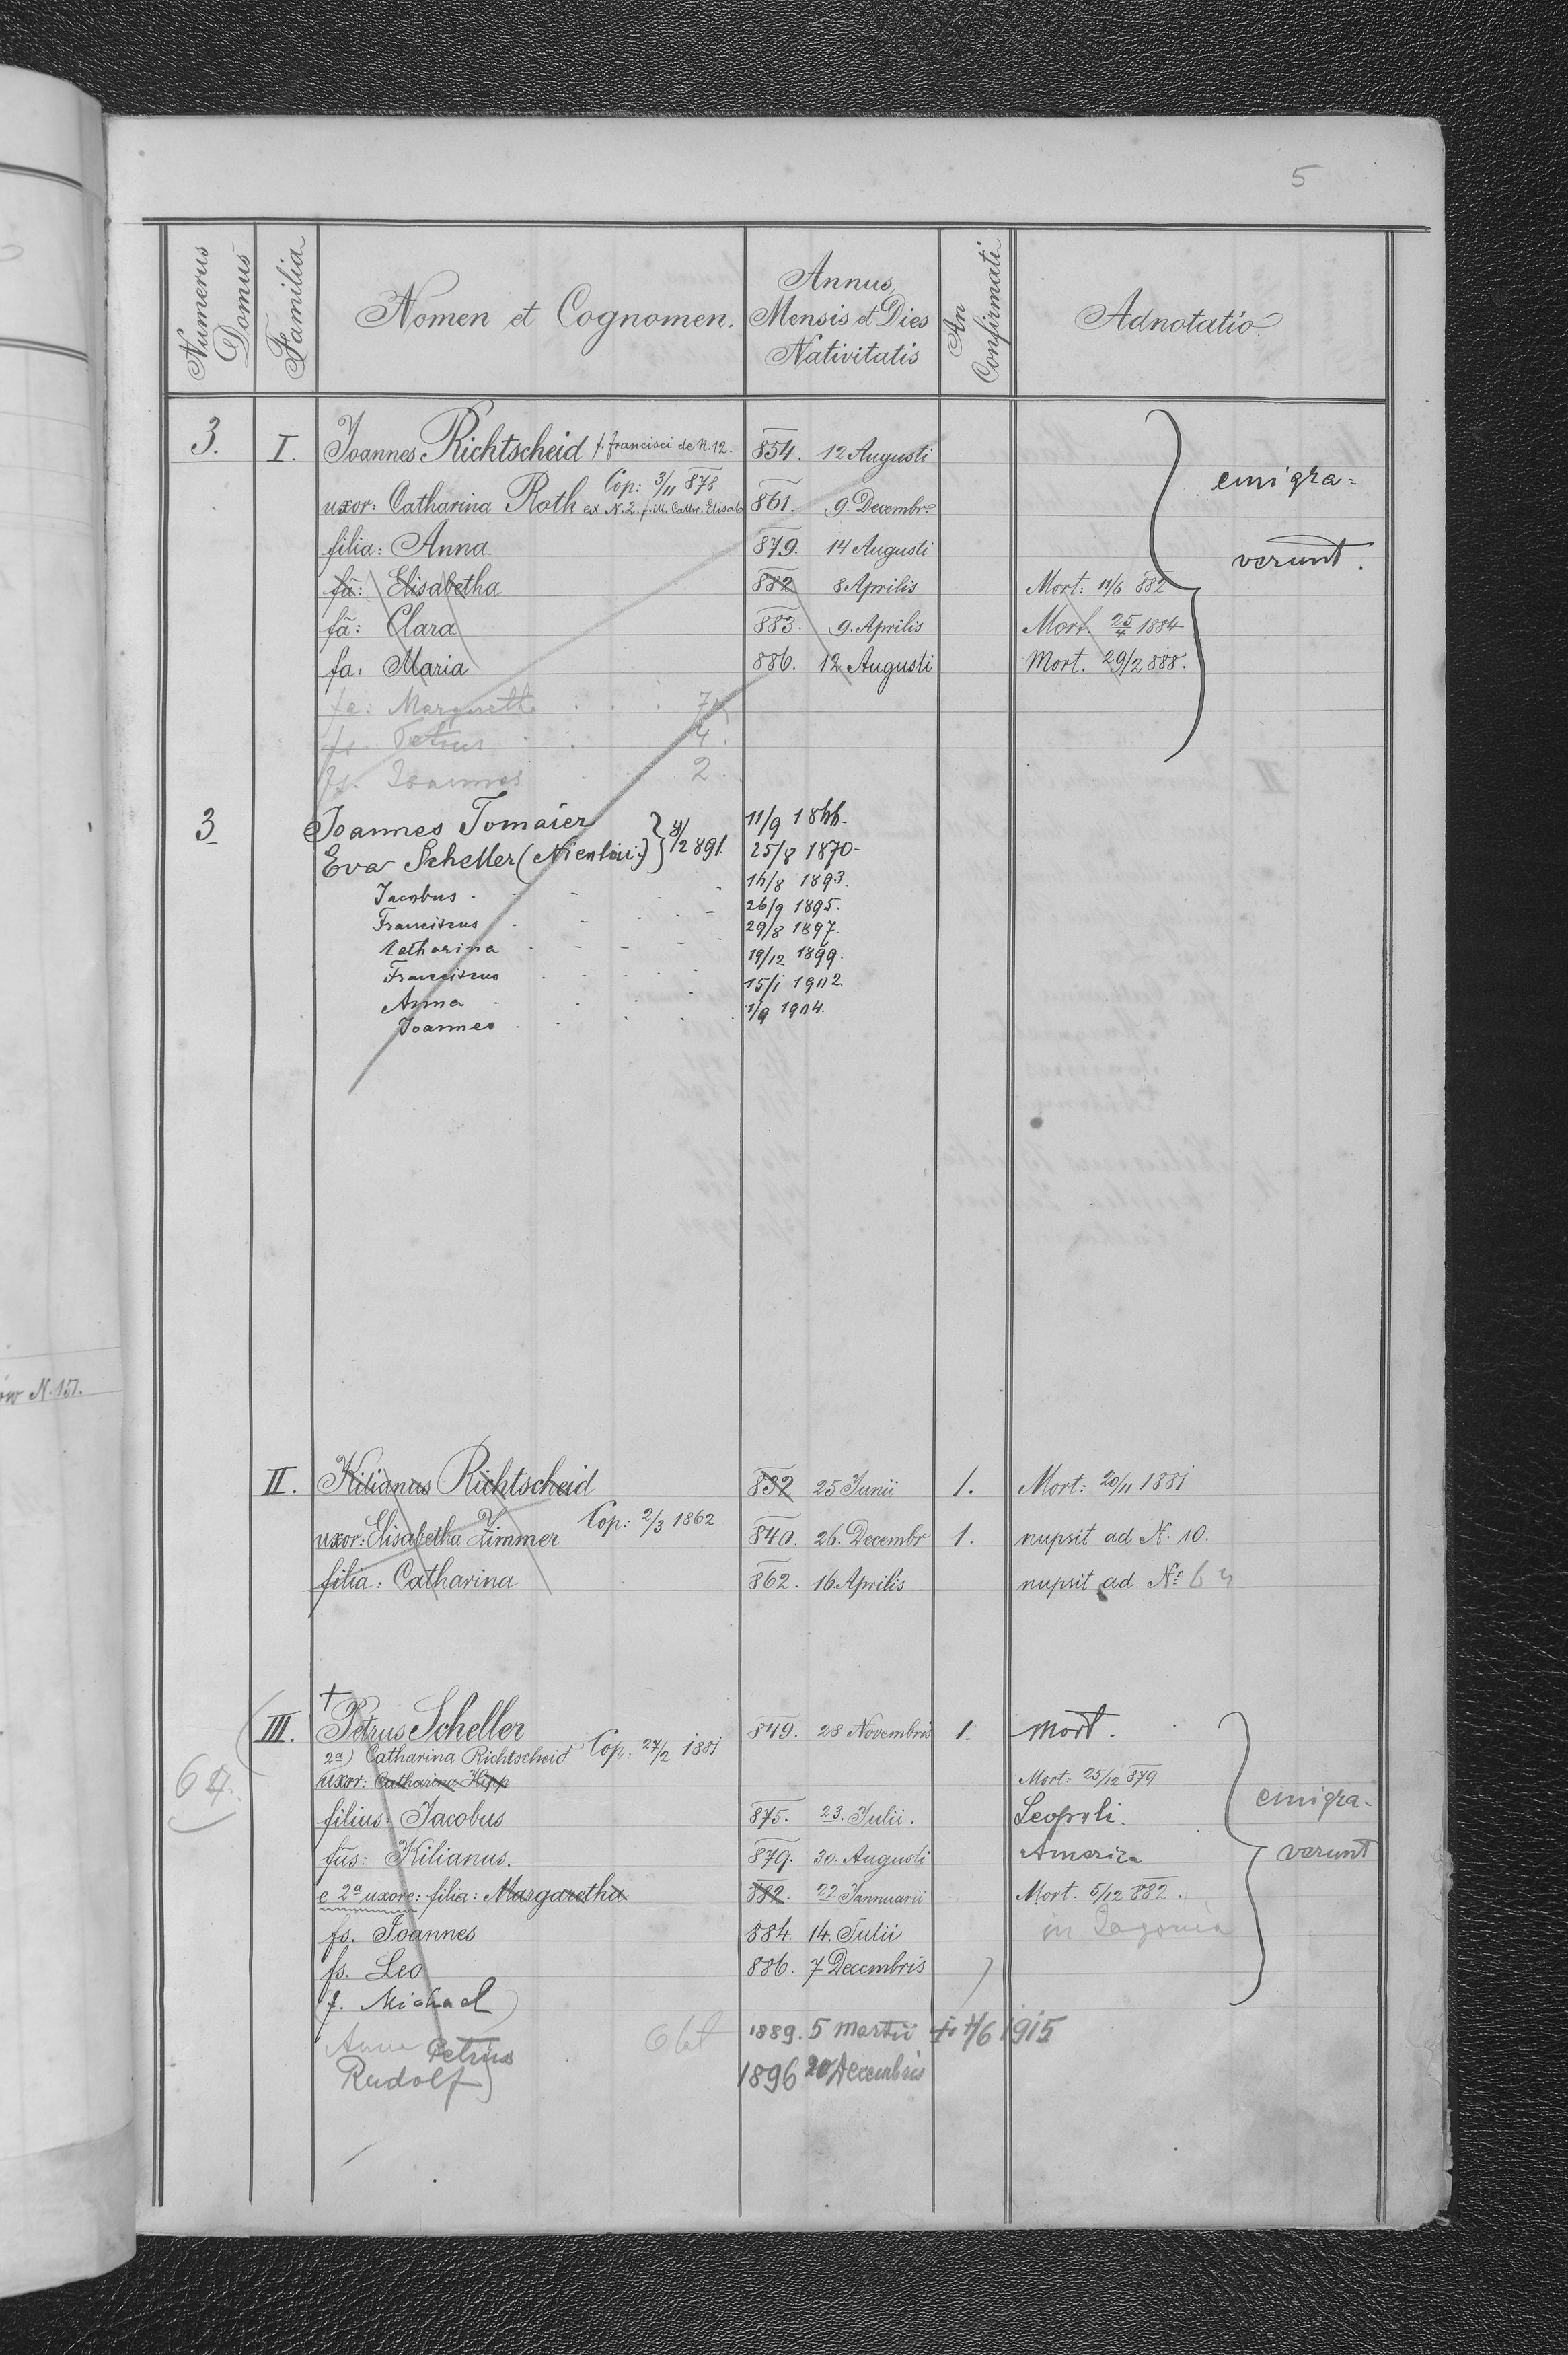 5
Numerus Domus
Familia
Nomen et Cognomen.
Annus, Mensis et Dies Nativitatis
An Confirmati
Adnotatio
3. I. Joannes Richtscheid f. Francisci de N. 12. 854. 12 Augusti
Cop: 3/11 878
uxor: Catharina Roth ex N. 2. f. ill. Cath. Elisab 861. 9. Decembr.
filia: Anna 879. 14 Augusti
fã: Elisabetha 882 8 Aprilis Mort: 11/6 882
fã: Clara 883. 9. Aprilis Mort. 25/4 1884
fa: Maria 886. 12 Augusti Mort. 29/2 888.
emigra=
verunt.
fa: Margareth 7
fs. Petrus 4.
fs. Joannes 2.
3 Joannes Tomaier 11/9 1866
Eva Scheller (Nicolai:) } 8/2 891. 25/8 1870
Jacobus 16/8 1893.
Franciscus 26/9 1895.
Catharina 29/8 1897.
Franciscus 19/12 1899.
Anna 15/1 1902
Joannes 1/9 1904.
ow N. 151.
II. Kilianus Richtscheid 832 25 Junii 1. Mort: 20/11 1881
Cop: 2/3 1862
uxor: Elisabetha Zimmer 840. 26. Decembr 1. nupsit ad N. 10.
filia: Catharina 862. 16 Aprilis nupsit ad. Nr
III. † Petrus Scheller 849. 28 Novembris 1. mort.
2a) Catharina Richtscheid Cop: 27/2 1881
64. uxor: Catharina Hipp Mort: 25/12 879
filius: Jacobus 875. 23. Julii. Leopoli.
fũs: Kilianus. 879. 30. Augusti America
emigra-
verunt
e 2a uxore: filia: Margaretha 882. 22 Jannuarii Mort. 5/12 882.
fs. Joannes 884. 14. Julii in
fs. Leo 886. 7 Decembris
f. Michael
Anna Petrus 1889. 5 Martii 1915
Rudolf 1896 20 Decembris